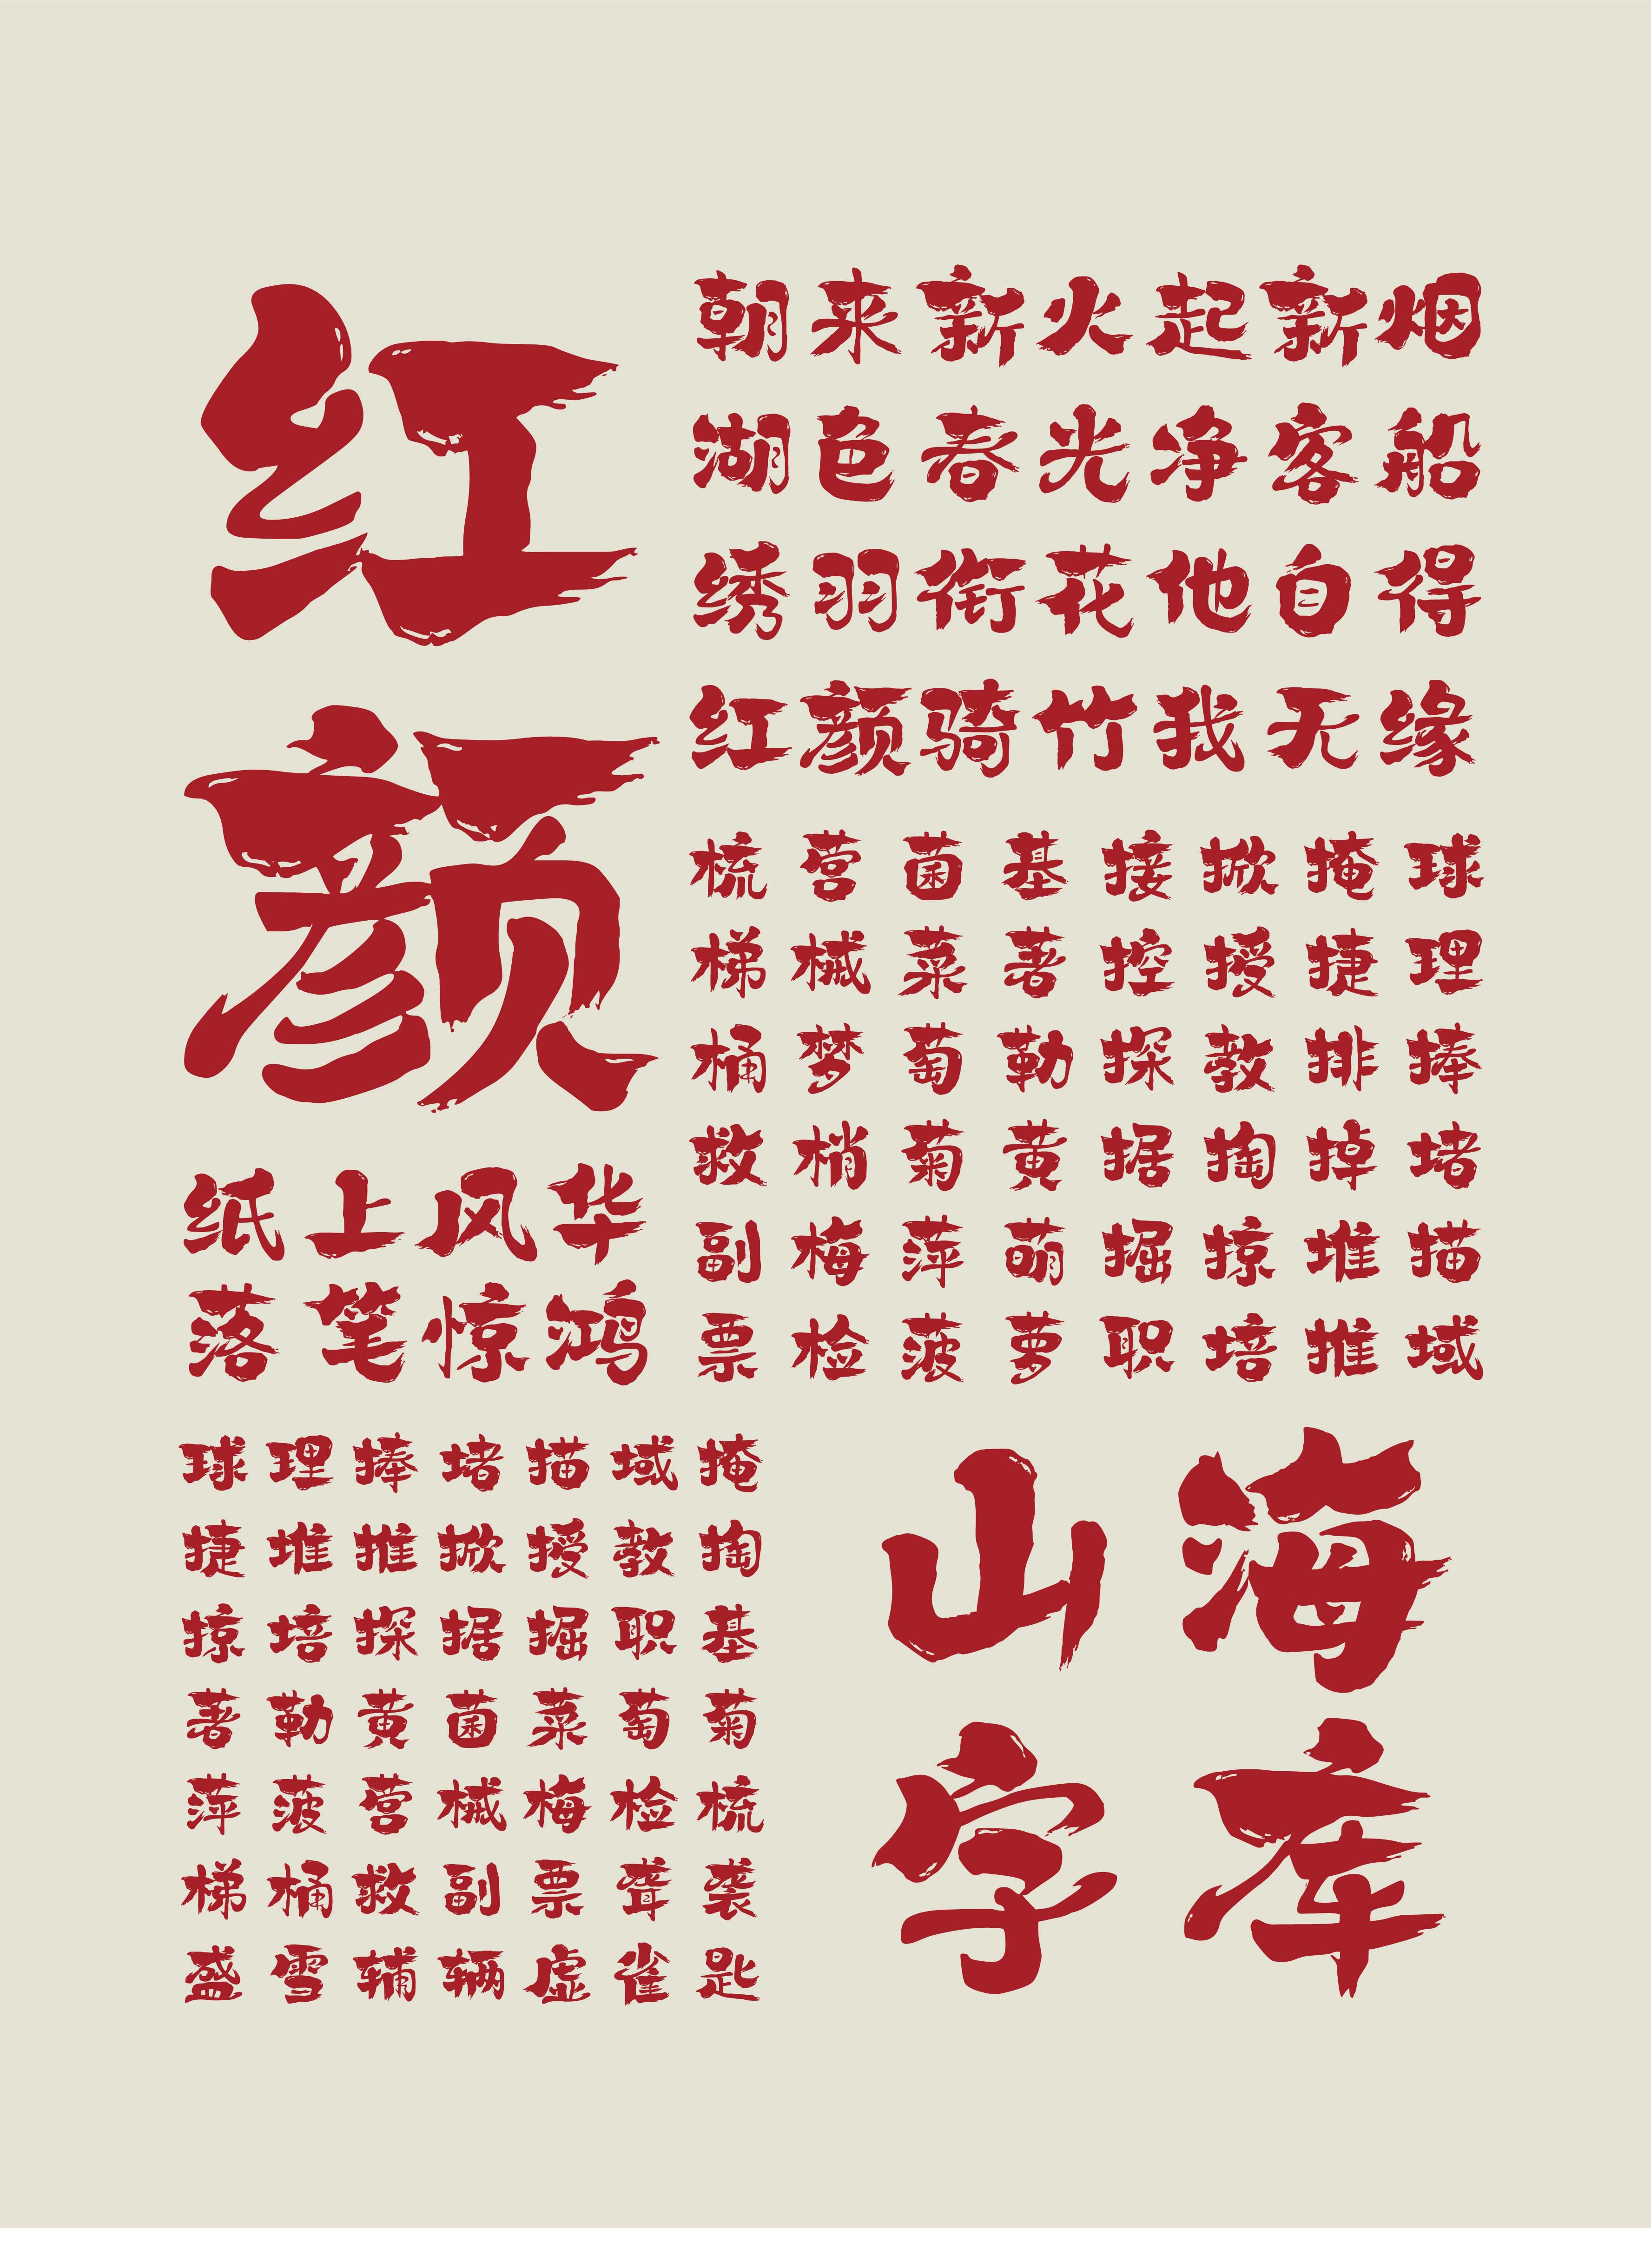 红
颜
朝来新火起新烟
湖色春光净客船
绣羽衔花他自得
红颜骑竹我无缘
梳营菌基接掀掩球
梯械菜著控授捷理
桶梦萄勒探教排捧
救梢菊黄据掏掉堵
副梅萍萌掘掠堆描
票检菠萝职培推域
纸上风华
落笔惊鸿
球理捧堵描域掩
捷堆推掀授教掏
掠培探据掘职基
著勒黄菌菜萄菊
萍菠营械梅检梳
梯桶救副票聋袭
盛雪辅辆虚雀匙
山海
字库